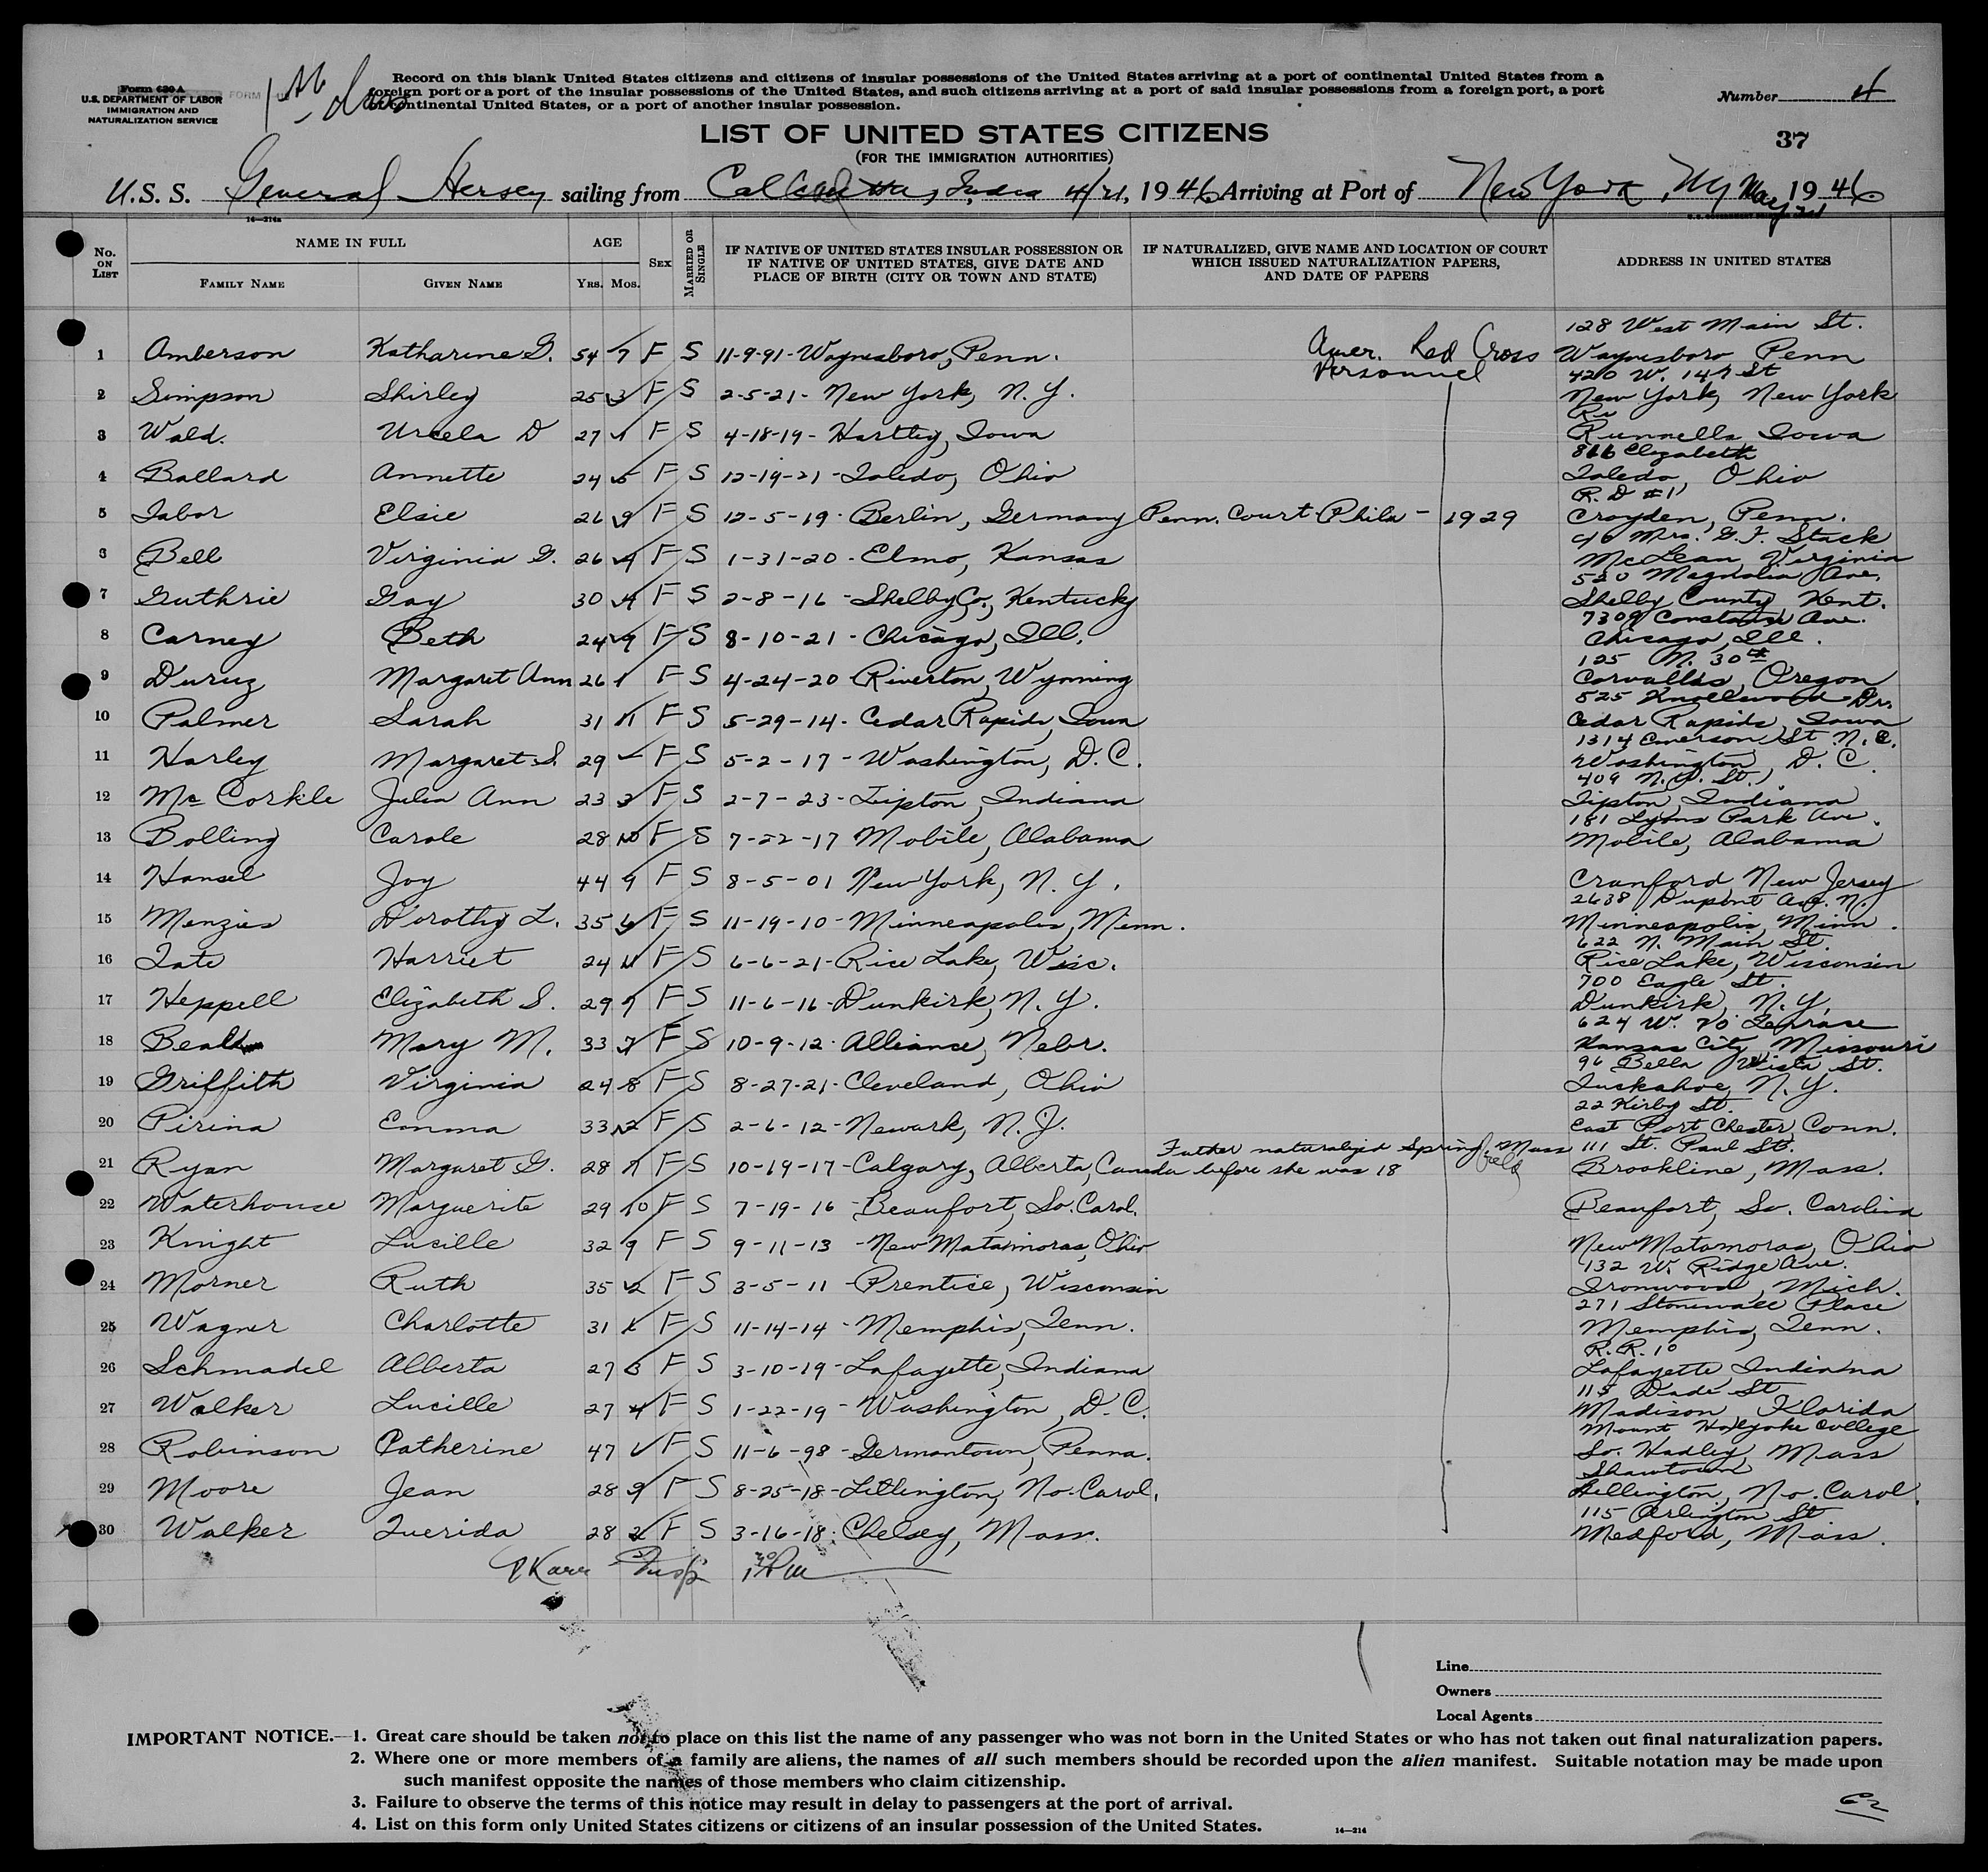 Form 630 A
U.S. DEPARTMENT OF LABOR
IMMIGRATION AND
NATURALIZATION SERVICE
Record on this blank United States citizens and citizens of insular possessions of the United States arriving at a port of continental United States from a
foreign port or a port of the insular possessions of the United States, and such citizens arriving at a port of said insular possessions from a foreign port, a port
continental United States, or a port of another insular possession.
Number 4
37
LIST OF UNITED STATES CITIZENS
(FOR THE IMMIGRATION AUTHORITIES)
U.S.S. General Hersey sailing from Calcutta, India 4/21, 1946 Arriving at Port of New York, NY May 1946
No. ON LIST
NAME IN FULL
FAMILY NAME GIVEN NAME
AGE
YRS. MOS.
SEX
MARRIED OR SINGLE
IF NATIVE OF UNITED STATES INSULAR POSSESSION OR
IF NATIVE OF UNITED STATES, GIVE DATE AND
PLACE OF BIRTH (CITY OR TOWN AND STATE)
IF NATURALIZED, GIVE NAME AND LOCATION OF COURT
WHICH ISSUED NATURALIZATION PAPERS,
AND DATE OF PAPERS
ADDRESS IN UNITED STATES
128 West Main St.
1 Amberson Katharine G. 54 7 F S 11-9-91-Waynesboro, Penn. Amer. Red Cross Personnel Waynesboro Penn
420 W. 147 St
2 Simpson Shirley 25 3 F S 2-5-21- New York, N.Y. New York, New York
3 Wald. Urcela D 27 1 F S 4-18-19- Hartley, Iowa Runnells Iowa
866 Elizabeth
4 Ballard Annette 24 5 F S 12-19-21-Toledo, Ohio Toledo, Ohio
R.D #1
5 Tabor Elsie 26 9 F S 12-5-19- Berlin, Germany Penn. Court-Phila - 1929 Croyden, Penn.
c/o Mrs. G.F. Stack
6 Bell Virginia G. 26 4 F S 1-31-20- Elmo, Kansas McLean Virginia
520 Magnolia Ave.
7 Guthrie Gay 30 4 F S 2-8-16 -Shelby Co., Kentucky Shelby County Kent.
7309 Constance Ave.
8 Carney Beth 24 9 F S 8-10-21- Chicago, Ill. Chicago, Ill.
125 N. 30th
9 Duruz Margaret Ann 26 1 F S 4-24-20-Riverton, Wyoming Corvallis, Oregon
525 Knollwood Dr.
10 Palmer Sarah 31 11 F S 5-29-14- Cedar Rapids, Iowa Cedar Rapids, Iowa
1314 Emerson St N.E.
11 Harley Margaret S. 29 - F S 5-2-17- Washington, D.C. Washington, D.C.
409 N. St.
12 McCorkle Julia Ann 23 3 F S 2-7-23-Tipton, Indiana Tipton, Indiana
181 Lyons Park Ave.
13 Bolling Carole 28 10 F S 7-22-17 Mobile, Alabama Mobile, Alabama
14 Hansel Joy 44 9 F S 8-5-01 New York, N.Y. Cranford, New Jersey
2638 Dupont Ave. N.
15 Menzies Dorothy L. 35 6 F S 11-19-10- Minneapolis, Minn. Minneapolis, Minn.
622 N. Main St.
16 Tate Harriet 24 11 F S 6-6-21-Rice Lake, Wisc. Rice Lake, Wisconsin
700 Eagle St.
17 Heppell Elizabeth S. 29 7 F S 11-6-16-Dunkirk, N.Y. Dunkirk, N.Y.
624 W. 70 Terrace
18 Beall Mary M. 33 7 F S 10-9-12- Alliance, Nebr. Kansas City, Missouri
96 Bella Vista St.
19 Griffith Virginia 24 8 F S 8-27-21- Cleveland, Ohio Tuckahoe, N.Y.
22 Kirby St.
20 Pirina Emma 33 2 F S 2-6-12-Newark, N.J. East Port Chester Conn.
Father naturalized Springfield Mass 111 St. Paul St.
21 Ryan Margaret G. 28 7 F S 10-19-17-Calgary, Alberta, Canada before she was 18 Brookline, Mass.
22 Waterhouse Marguerite 29 10 F S 7-19-16 -Beaufort, So. Carol. Beaufort, So. Carolina
23 Knight Lucille 32 9 F S 9-11-13 -New Matamoras, Ohio New Matamoras, Ohio
132 W. Ridge Ave.
24 Morner Ruth 35 2 F S 3-5-11 -Prentice, Wisconsin Ironwood, Mich.
271 Stonewall Place
25 Wagner Charlotte 31 F S 11-14-14 - Memphis, Tenn. Memphis, Tenn.
R.R. 10
26 Schmadel Alberta 27 3 F S 3-10-19-Lafayette, Indiana Lafayette Indiana
115 Dade St
27 Walker Lucille 27 4 F S 1-22-19 - Washington, D.C. Madison, Florida
Mount Holyoke College
28 Robinson Catherine 47 6 F S 11-6-98-Germantown, Penna. So. Hadley, Mass
Shawtown
29 Moore Jean 28 9 F S 8-25-18-Lillington, No. Carol. Lillington, No. Carol.
115 Arlington St
30 Walker Querida 28 2 F S 3-16-18- Chelsey, Mass. Medford, Mass.
Line
Owners
Local Agents
IMPORTANT NOTICE.—1. Great care should be taken not to place on this list the name of any passenger who was not born in the United States or who has not taken out final naturalization papers.
2. Where one or more members of a family are aliens, the names of all such members should be recorded upon the alien manifest. Suitable notation may be made upon
such manifest opposite the names of those members who claim citizenship.
3. Failure to observe the terms of this notice may result in delay to passengers at the port of arrival.
4. List on this form only United States citizens or citizens of an insular possession of the United States.
14—214